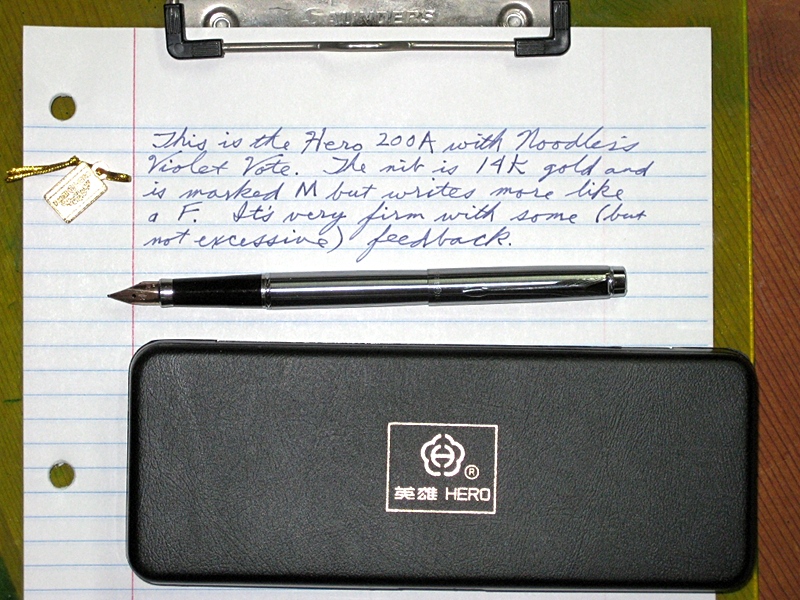 SAUNDERS
This is the Hero 200A with Noodler's
Violet Vote. The nib is 14K gold and
is marked M but writes more like
a F. It's very firm with some (but
not excessive) feedback.
®
英雄 HERO